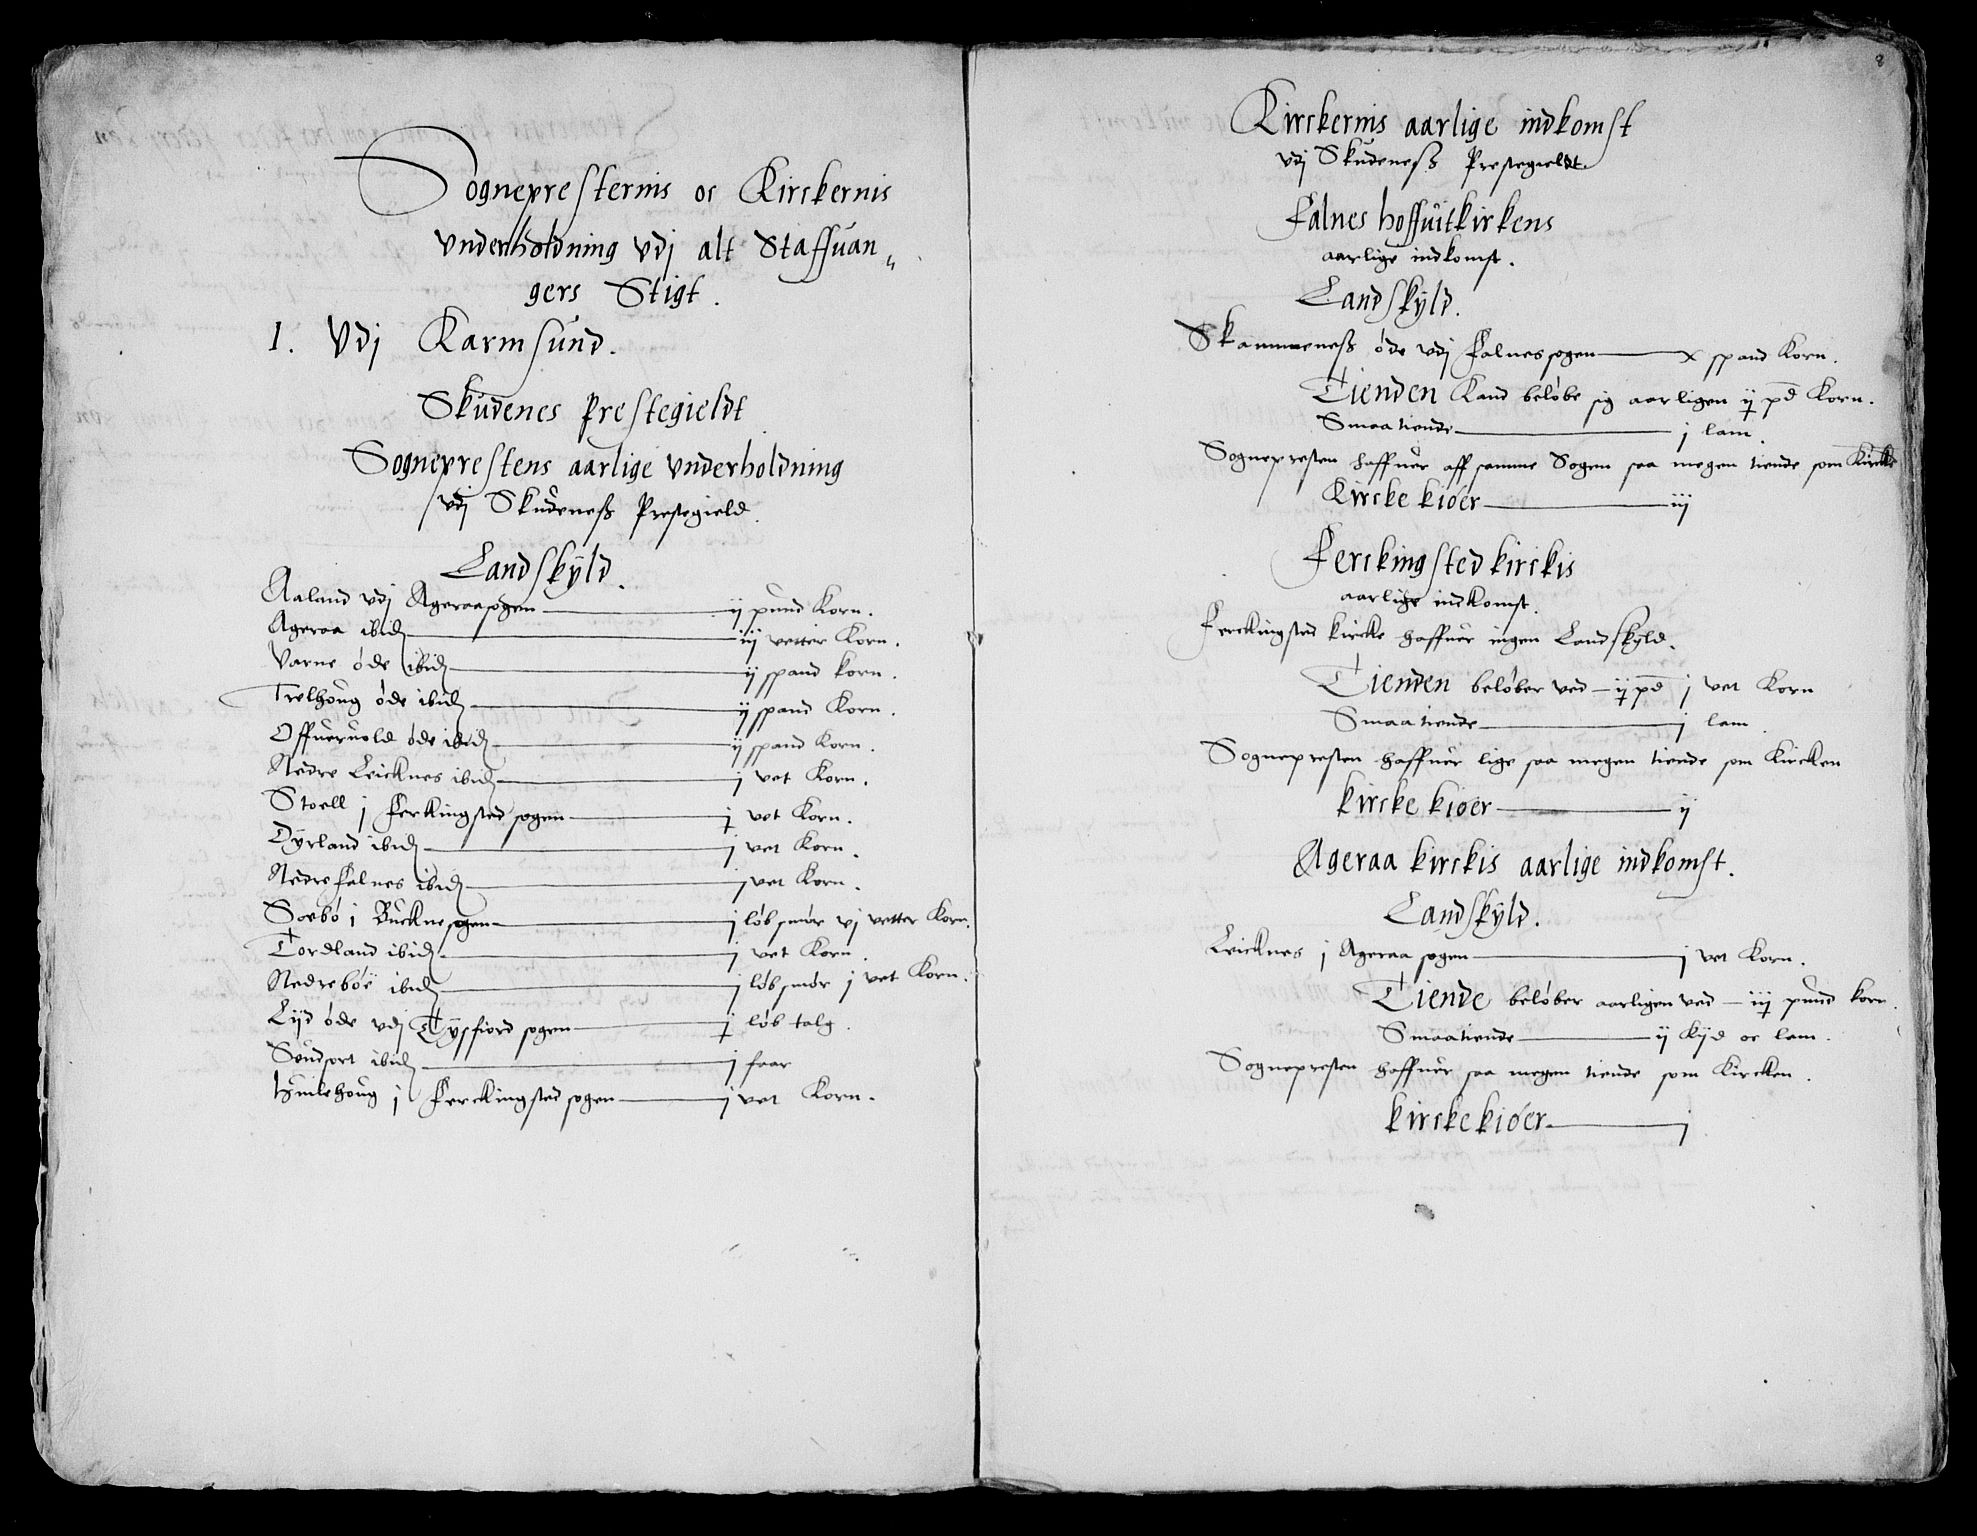 Sognepresternis oc Kirckernis
Vnderholdning vdj alt Staffuan„
gers Stigt.
1. Vdj Karmsund.
Skudenes Prestegieldt
Sogneprestens aarlige Vnderholdning
vdj Skudeneß Prestegield.
Landskÿld.
Aaland vdj Ageraasogen — ij pund Korn.
Ageraa ibid — iij vetter Korn.
Varne øde ibid — ij spand korn.
Trelhoug øde ibid — ij spand Korn.
Offueruold øde ibid — ij spand Korn.
Nedre Leicknes ibid — j vet Korn.
Stoell j Ferkingsted sogen — j vet Korn.
Dyrland ibid — j vet Korn.
Nedre Falnes ibid — j vet Korn.
Soebø i Buckne sogen — j løb smør vj vetter Korn.
Tordland ibid — j vet Korn.
Nedrebøe ibid — j løb smør j vet Korn.
Lijd øde vdj Tysfiord sogen — j løb talg.
Sundfort ibid — j faar
Huilehoug j Ferckingsted sogen — j vet Korn.
8
Kirckernis aarlige indkomst
vdj Skudeneß Prestegieldt.
Falnes hoffuitkirkens
aarlige indkomst.
Landskÿld.
Skammeneß øde vdj Falnessogen — x spand Korn.
Tienden Kand beløbe sig aarligen ij pd Korn.
Smaatiende — j lam.
Sognepresten haffuer aff samme Sogen saa megen tiende som Kircke
Kircke kiøer — iij
Ferckingsted kirckis
aarlige indkomst.
Ferckingsted kircke haffuer ingen Landskyld.
Tienden beløber ved — ij pd j vet Korn
Smaatiende — j lam.
Sognepresten haffuer lige saa megen tiende som Kircken
kircke kiøer — ij
Ageraa kirckis aarlige indkomst.
Landskÿld.
Leicknes j Ageraa sogen — j vet Korn.
Tiende beløber aarligen ved — iij pund korn.
Smaatiende — ij Kijd oc lam.
Sognepresten haffuer saa megen tiende som Kircken.
kirckekiøer — j